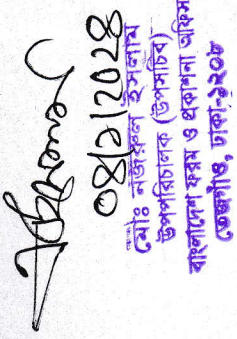 ০৪/১/২০২৪
মোঃ নজরুল ইসলাম
উপপরিচালক (উপসচিব)
বাংলাদেশ ফরম ও প্রকাশনা অফিস
তেজগাঁও, ঢাকা-১২০৮